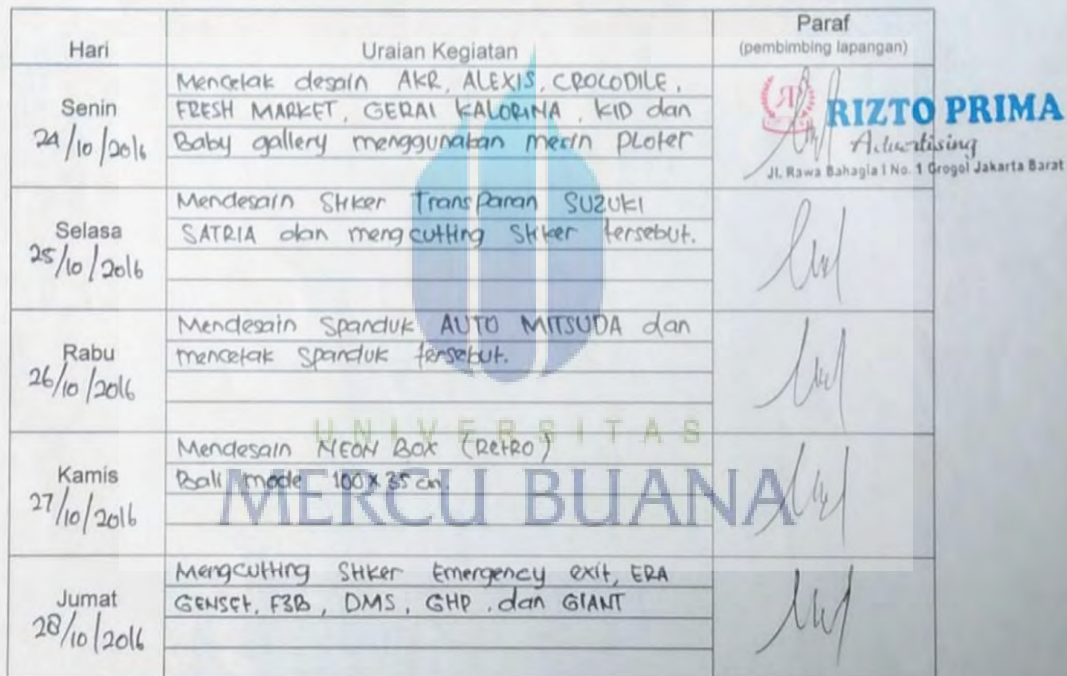 Hari
Uraian Kegiatan
Paraf
(pembimbing lapangan)
Senin
24/10/2016
Mencetak desain AKR, ALEXIS, CROCODILE,
FRESH MARKET, GERAI KALORINA, KID dan
Baby gallery menggunakan mesin PLOter
RIZTO PRIMA
Advertising
Jl. Rawa Bahagia I No. 1 Grogol Jakarta Barat
Selasa
25/10/2016
Mendesain Stiker Transparan SUZUKI
SATRIA dan mengcutting Stiker tersebut.
Rabu
26/10/2016
Mendesain Spanduk AUTO MITSUDA dan
mencetak Spanduk tersebut.
UNIVERSITAS
MERCU BUANA
Kamis
27/10/2016
Mendesain NEON BOX (RETRO)
Bali mode 100 x 35 cm.
Jumat
28/10/2016
Mengcutting Stiker Emergency exit, ERA
GENSET, F3B, DMS, GHP, dan GIANT